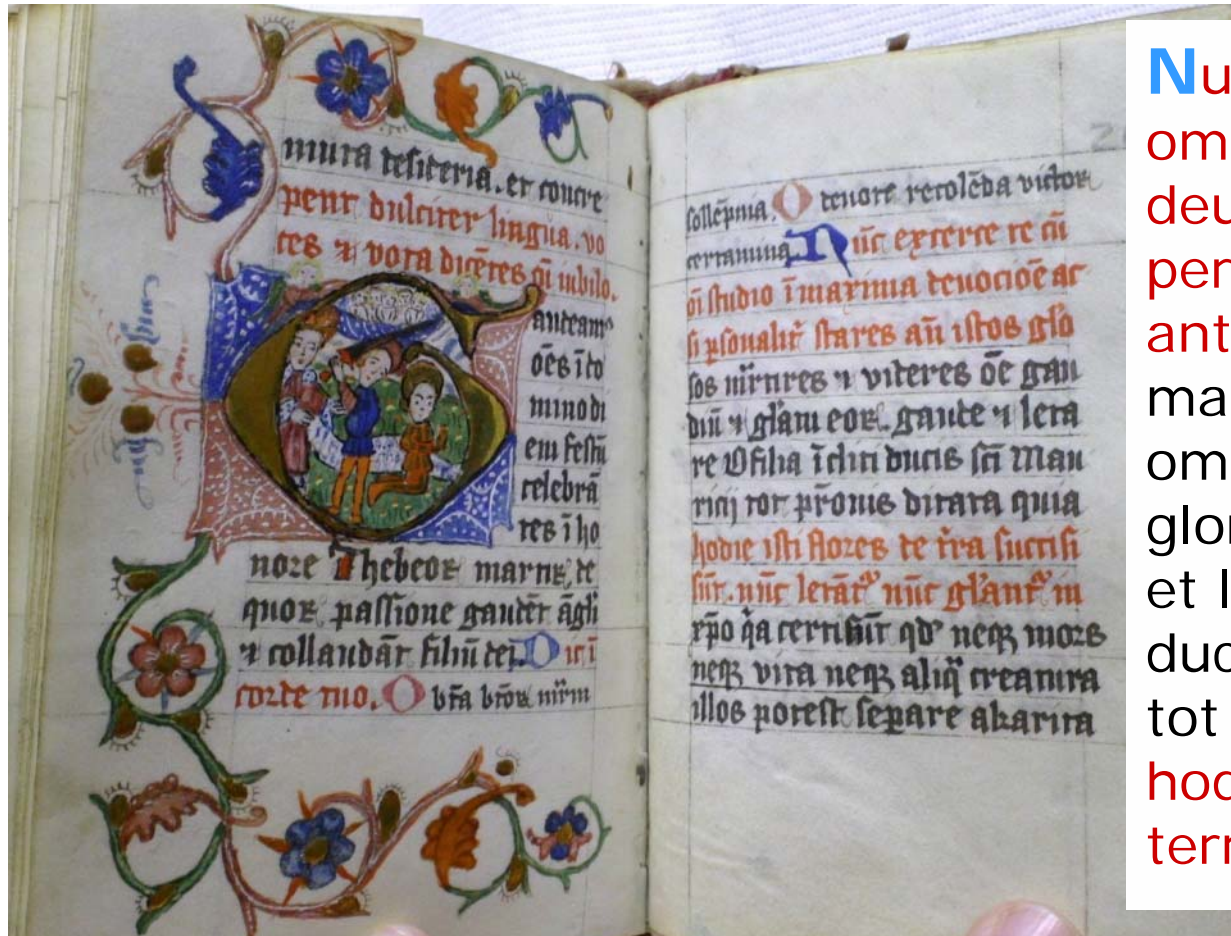 mina desideria. et concre
pent dulciter lingua. vo
ces ⁊ vota dicētes cū iubilo.
audeamꝰ
oēs ī do
mino di
em festū
celebrā
tes ī ho
nore Thebeoꝝ martiꝝ, de
quoꝝ passione gaudēt āgli
⁊ collaudāt filiū dei. Dic ī
corde tuo. O bt̄a btōꝝ mr̄m
sollēpnia. O deuote recolēda victoꝝ
certamina. Nūc exerce te cū
oī studio ī maxima deuocioē ac
si psonalit̄ stares an̄ istos glo
sos mr̄tires ⁊ videres oē gau
diū ⁊ glām eoꝝ. gaude ⁊ leta
re O filia īcliti ducis sc̄i Mau
ricij tot pr̄onis ditata quia
hodie isti flores de tr̄a succisi
sūt. nūc letāt᷒ nūc glānt᷒ in
xp̄o q̄a certi sūt qd' neqꝫ mors
neqꝫ vita neqꝫ aliq̄ creatura
illos potest separe a karita
Nu
om
deu
per
ant
ma
om
glor
et l
duc
tot
hod
terr